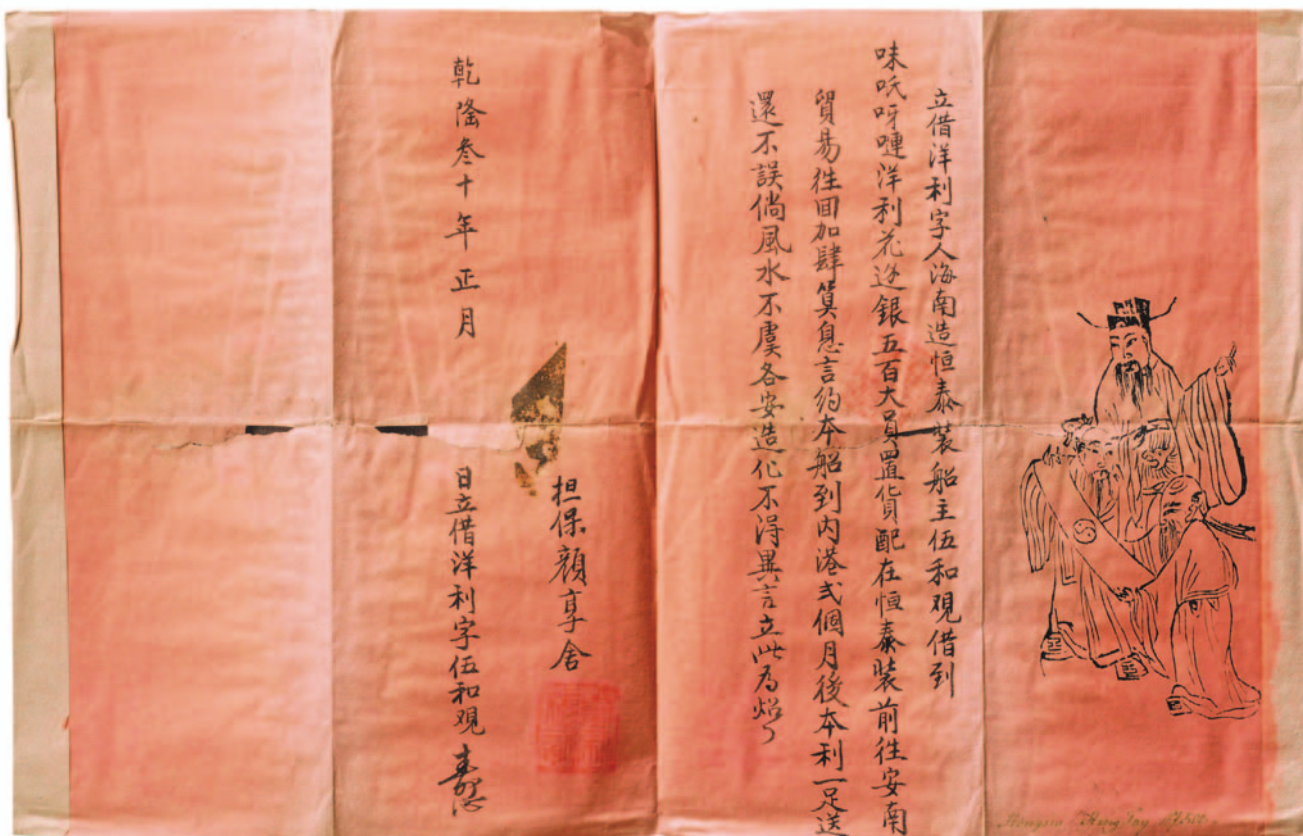 立借洋利字人海南造恒泰裝船主伍和觀借到
味氏呀嗹洋利花邊銀五百大員置貨配在恒泰裝前往安南
貿易徃回加肆算息言約本船到內港弍個月後本利一足送
還不誤倘風水不虞各安造化不得異言立此為炤
担保顏享舍
乾隆叁十年正月 日立借洋利字伍和觀